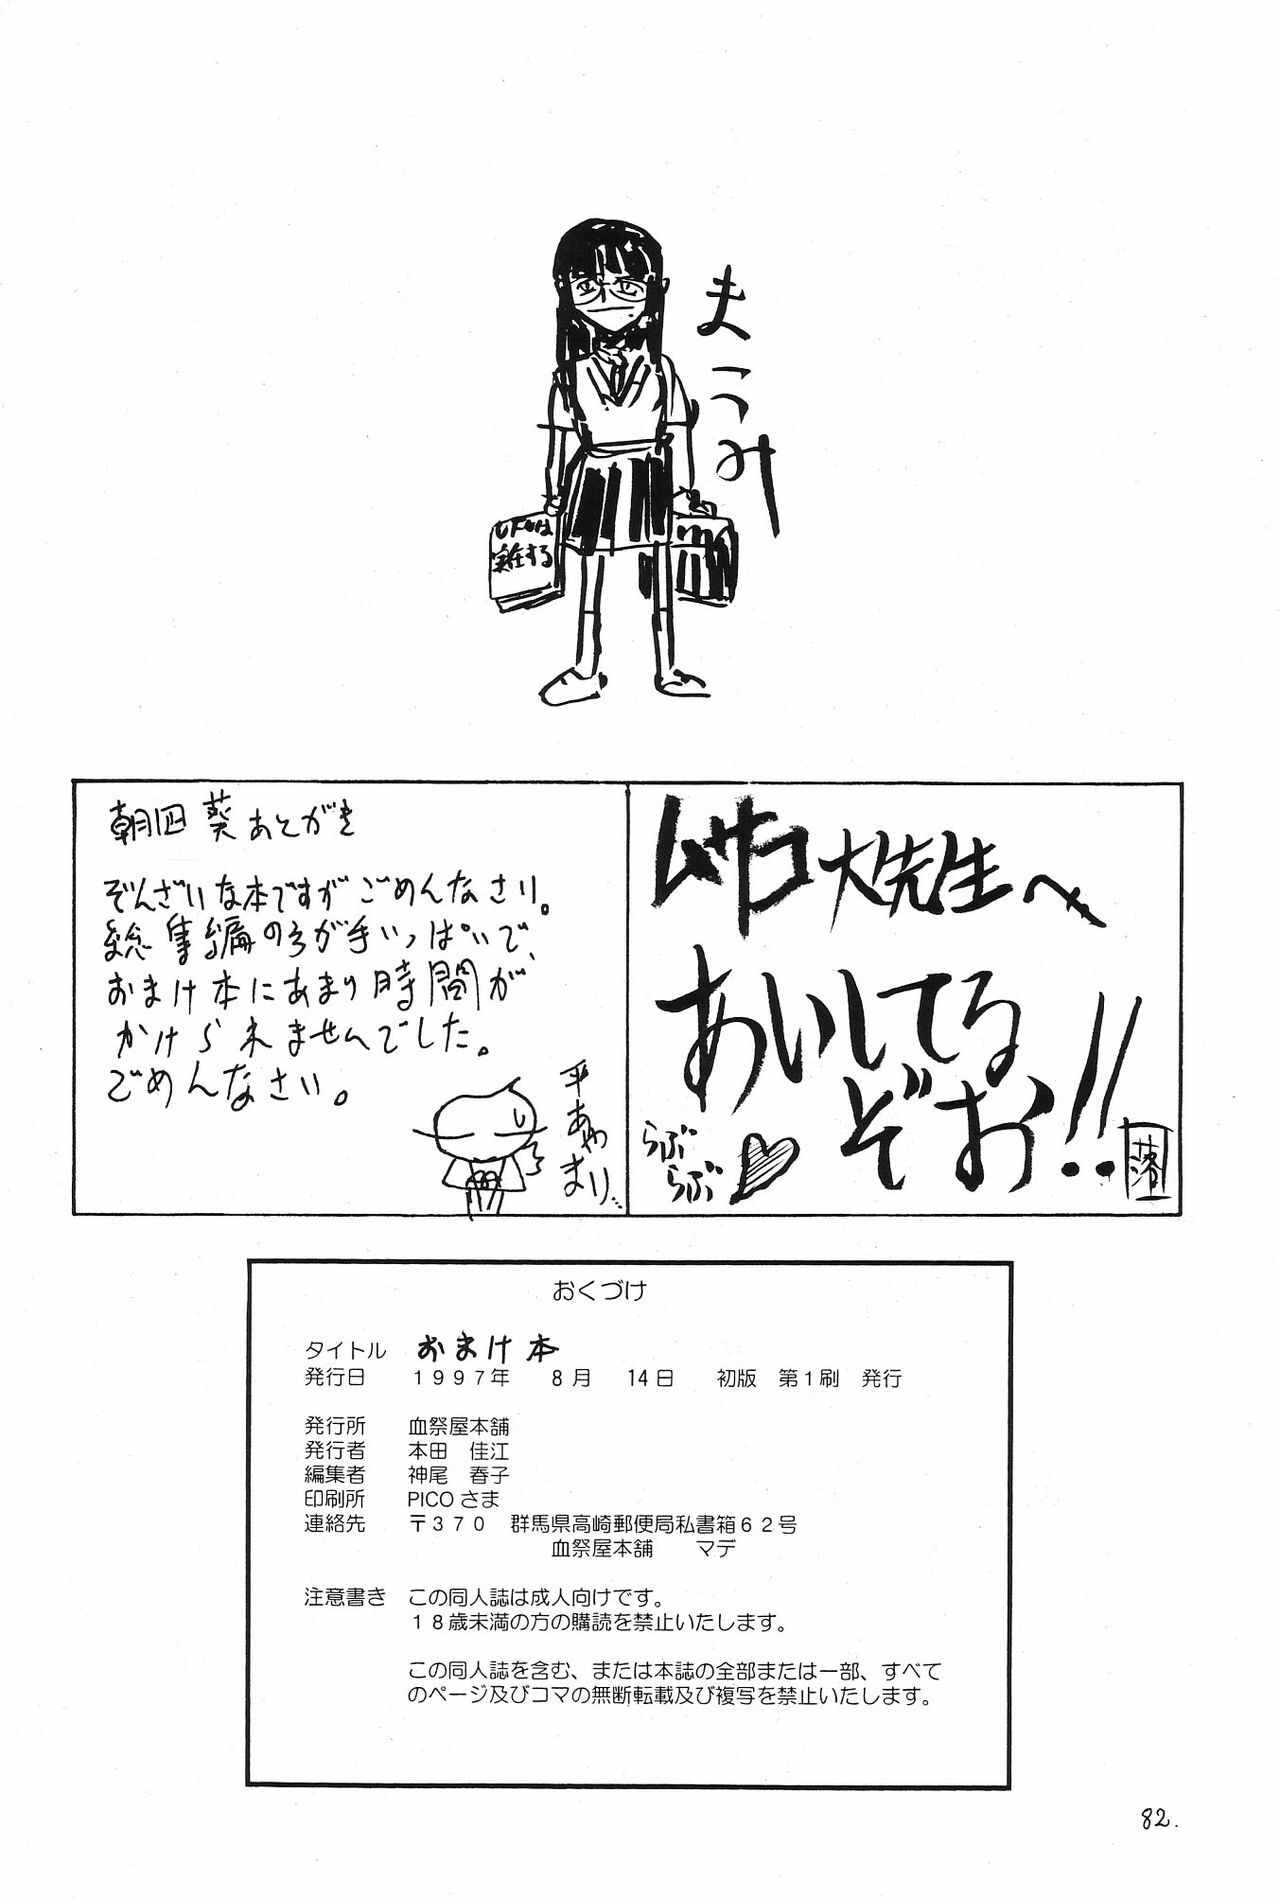 まこみ
UFOは
実在する
朝凪 葵 あとがき
ぞんざいな本ですが ごめんなさい。
総集編の方が手いっぱいで
おまけ本にあまり時間が
かけられませんでした。
ごめんなさい。
平あやまり…
ムサコ大先生へ
あいしてる
ぞお!!
らぶ
らぶ
落
おくづけ
タイトル おまけ本
発行日 1997年 8月 14日 初版 第1刷 発行
発行所 血祭屋本舗
発行者 本田 佳江
編集者 神尾 春子
印刷所 PICOさま
連絡先 〒370 群馬県高崎郵便局私書箱62号
血祭屋本舗 マデ
注意書き この同人誌は成人向けです。
18歳未満の方の購読を禁止いたします。
この同人誌を含む、または本誌の全部または一部、すべて
のページ及びコマの無断転載及び複写を禁止いたします。
82.